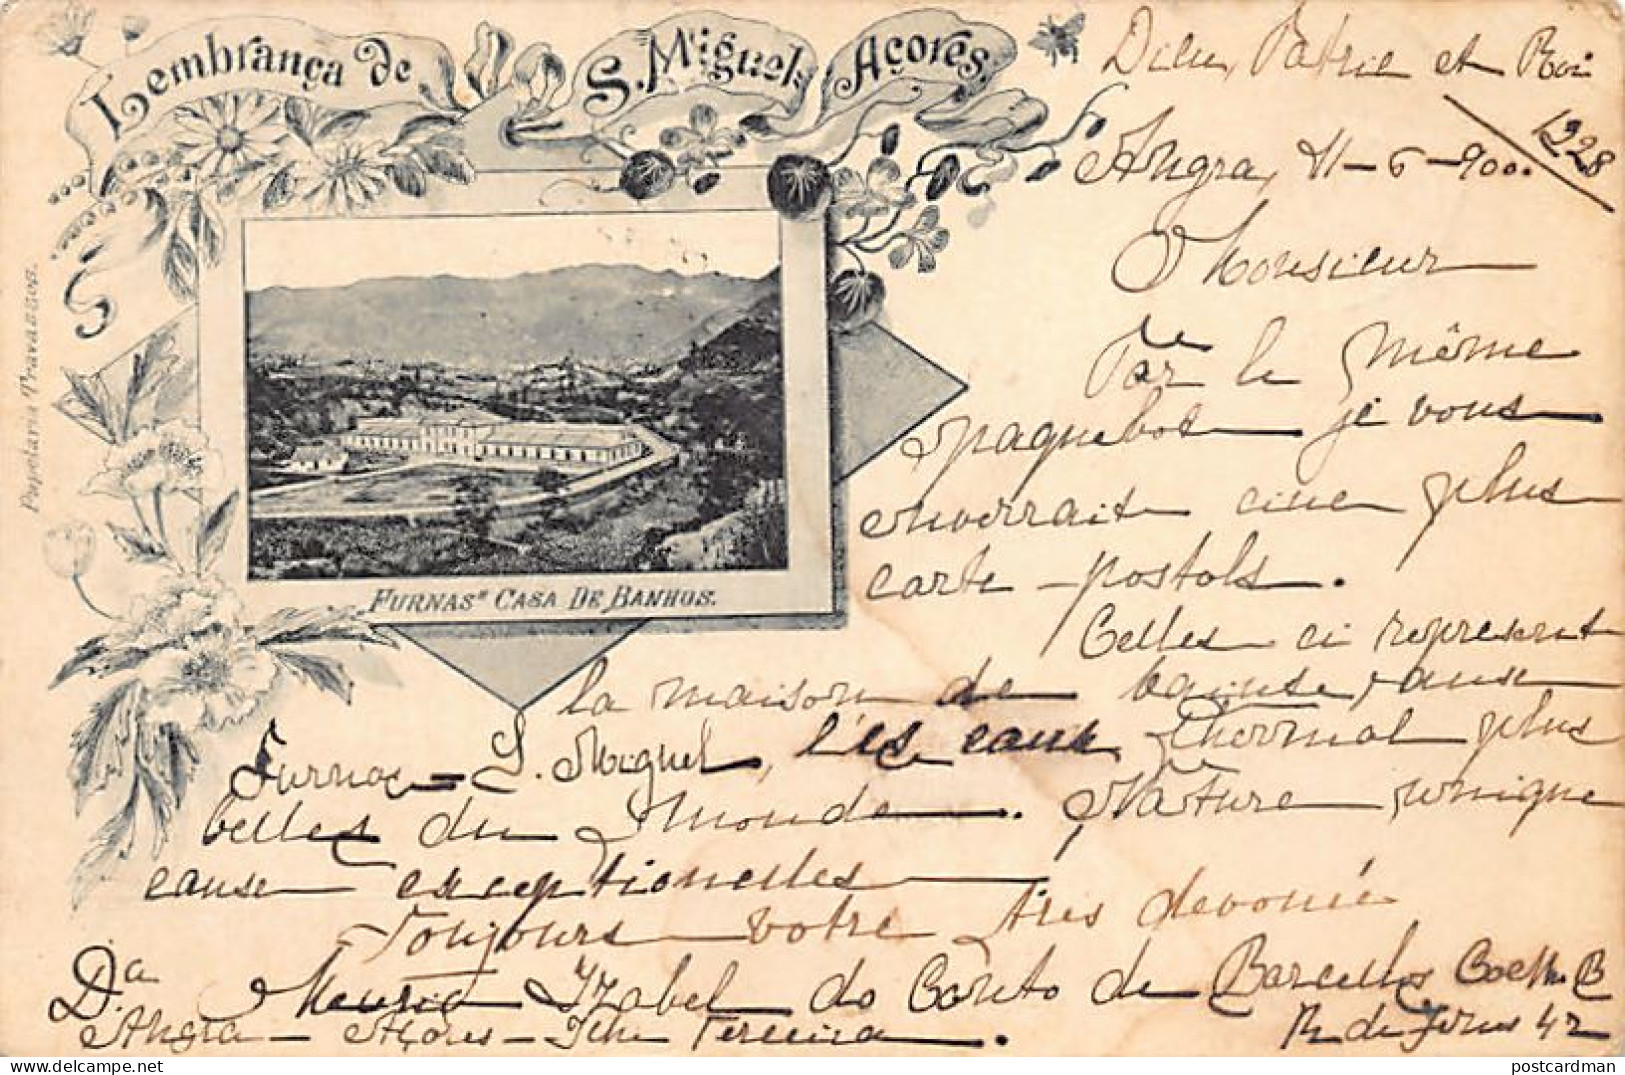 Lembrança de S. Miguel Açores.
Papelaria Travassos.
FURNAS" CASA DE BANHOS.
Dieu, Patrie et Roi
1228
Angra, 11-6-900.
Monsieur
Par le même
paquebot je vous
enverrait cine plus
carte-postals.
Celles ci represent
la maison de bainse,
Furnas - S. Miguel, lés eaux thermal plus
belles du monde. Nature unique
cause exceptionelles
Toujours votre très devouée
Da Maria Izabel do Canto de Barcellos Coelho B
Angra - Açores - Ilha Terceira. R de Jesus 42
postcardman